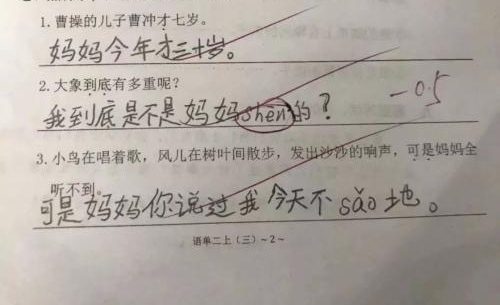 1.曹操的儿子曹冲才七岁。
妈妈今年才三十岁。
2.大象到底有多重呢?
我到底是不是妈妈shēn的? -0.5
3.小鸟在唱着歌,风儿在树叶间散步,发出沙沙的响声,可是妈妈全
听不到。
可是妈妈你说过我今天不sǎo地。
语单二上(三)~2~